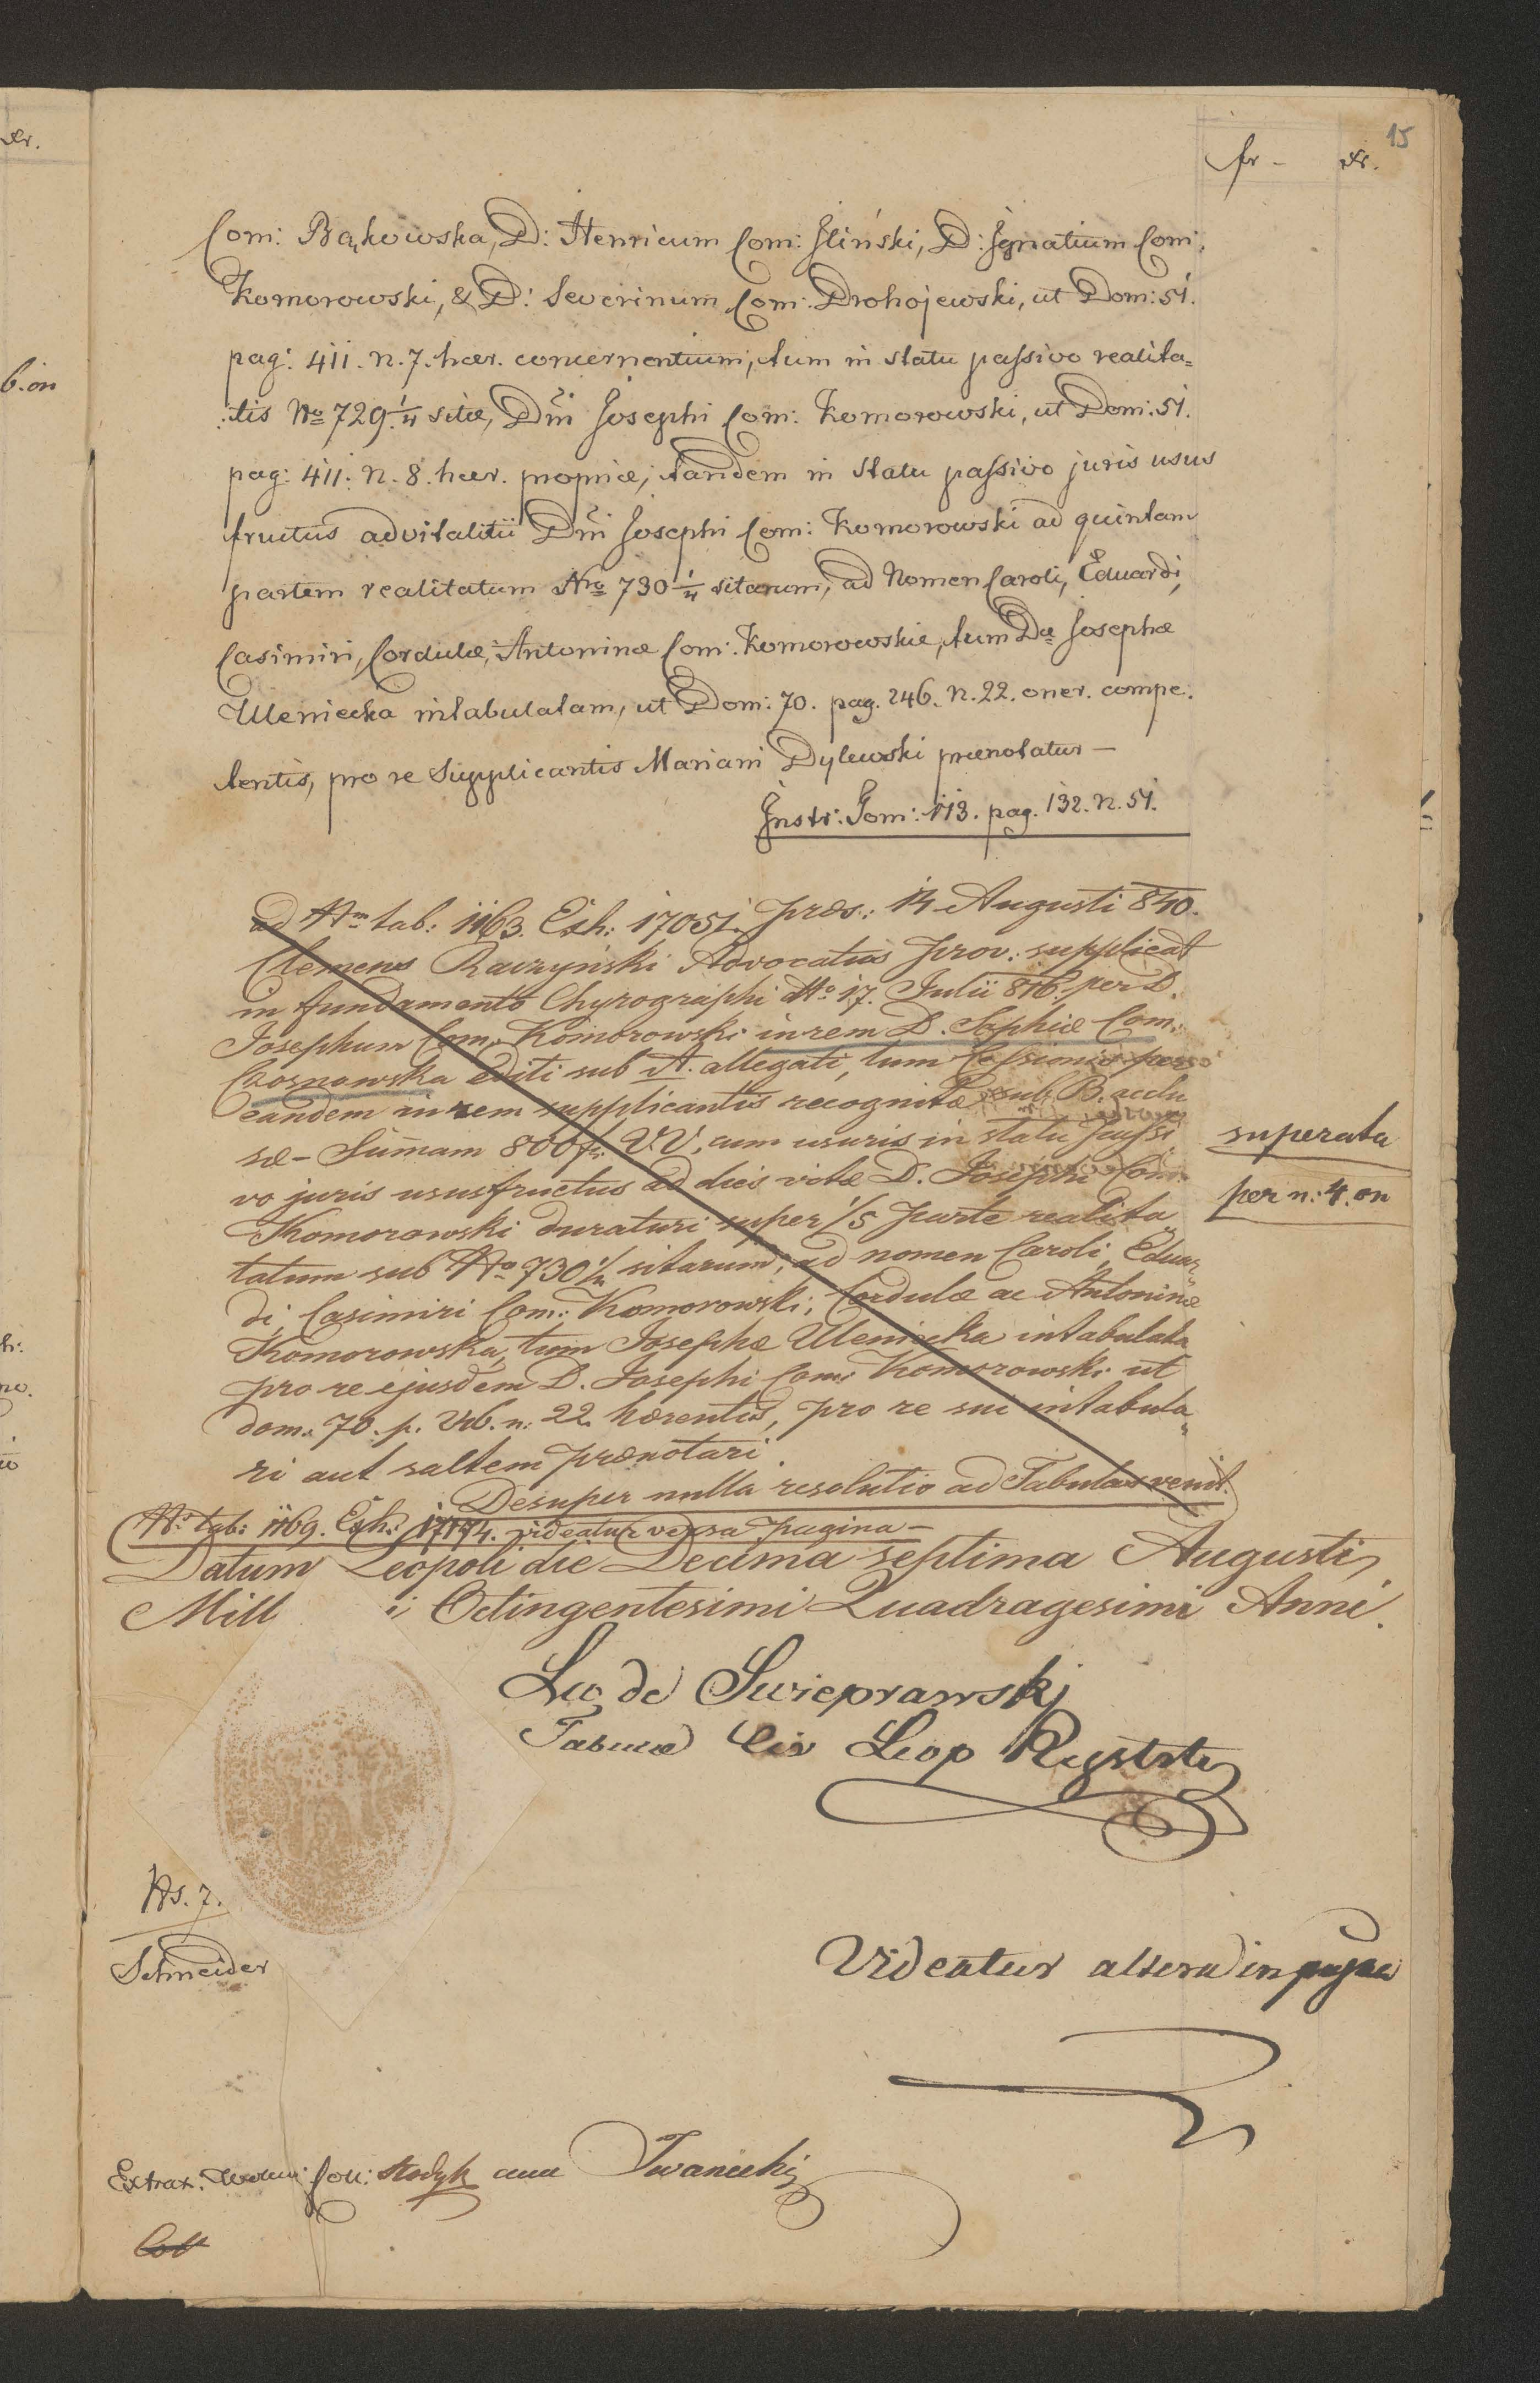 15
fr - xr.
Com: Bąkowska, D: Henricum Com: Iliński, D: Ignatium Com:
Komorowski, & D: Severinum Com: Drohojewski, ut Dom: 51.
pag: 411. n. 7. haer. concernentium, tum in statu passivo realita=
:tis No 729 1/4 sitæ, Dni Josephi Com: Komorowski, ut Dom: 51.
pag: 411. n. 8. haer. propriæ; tandem in statu passivo juris usus
fructus advitalitii Dni Josephi Com: Komorowski ad quintam
partem realitatum Nro 730 1/4 sitarum, ad Nomen Caroli, Eduardi,
Casimiri, Cordulæ, Antoninæ Com: Komorowskie, tum Dæ Josephæ
Uleniecka intabulatam, ut Dom: 70. pag. 246. n. 22. oner. compe:
tentis, pro re Supplicantis Mariani Dylewski prænotatur —
Instr: Tom: 113. pag. 132. n. 51.
ad Nm tab: 1163. Exh: 17051. Præs.: 14 Augusti 840.
Clemens Raczyński Advocatus Prov: supplicat
in fundamento Chyrographi dto 17. Julii 816. per D.
Josephum Com. Komorowski in rem D. Sophiæ Com.
Czosnowska editi sub A. allegati, tum Cessionis per
eandem in rem supplicantis recognitæ sub B. acclu
sæ - Summam 800 fr. VV. cum usuris in statu passi
vo juris ususfructus ad dies vitæ D. Josephi Com.
Komorowski duraturi super 1/5 parte realita
tatum sub No 730 1/4 sitarum, ad nomen Caroli, Eduar
di, Casimiri Com: Komorowski, Cordulæ ac Antoninæ
Komorowska, tum Josephæ Uleniecka intabulata
pro re ejusdem D. Josephi Com: Komorowski ut
dom. 70. p. 246. n: 22. hærentis, pro re sui intabula
ri aut saltem prænotari.
Desuper nulla resolutio ad Tabulas venit.
superata
per n: 4. on
Nr tab: 1169. Exh: 17174. videatur versa pagina —
Datum Leopoli die Decima septima Augusti
Mill i Octingentesimi Quadragesimi Anni.
de Swieprawski
Tabulæ Civ Leop Rgstrtr
Schneider
Videatur altera in pagina
Extrax. Coll: cum Iwanicki
Coll